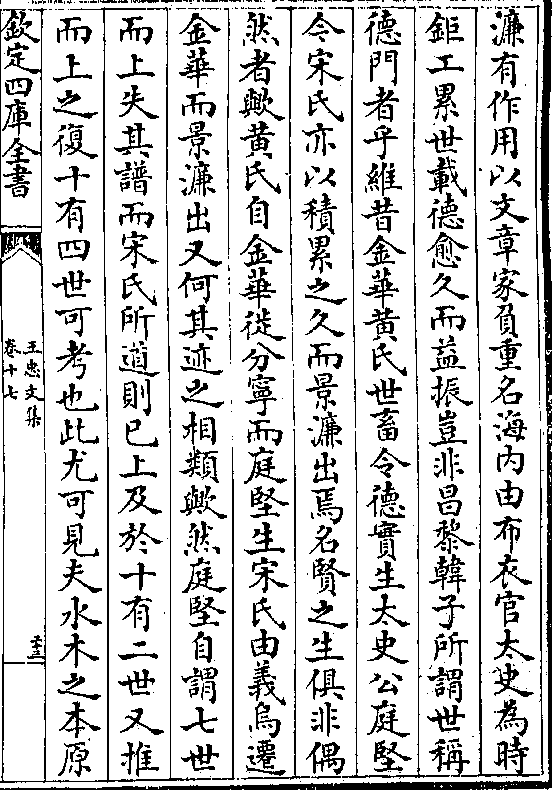 濂有作用以文章家負重名海内由布衣官太史為時
鉅工累世載德愈久而益振豈非昌黎韓子所謂世稱
德門者乎維昔金華黄氏世畜令德實生太史公庭堅
今宋氏亦以積累之久而景濂出焉名賢之生俱非偶
然者歟黄氏自金華徙分寧而庭堅生宋氏由義烏遷
金華而景濂出又何其迹之相類歟然庭堅自謂七世
而上失其譜而宋氏所遒則已上及於十有二世又推
而上之復十有四世可考也此尤可見夫水木之本原
欽定四庫全書
王忠文集
卷十七
二十三